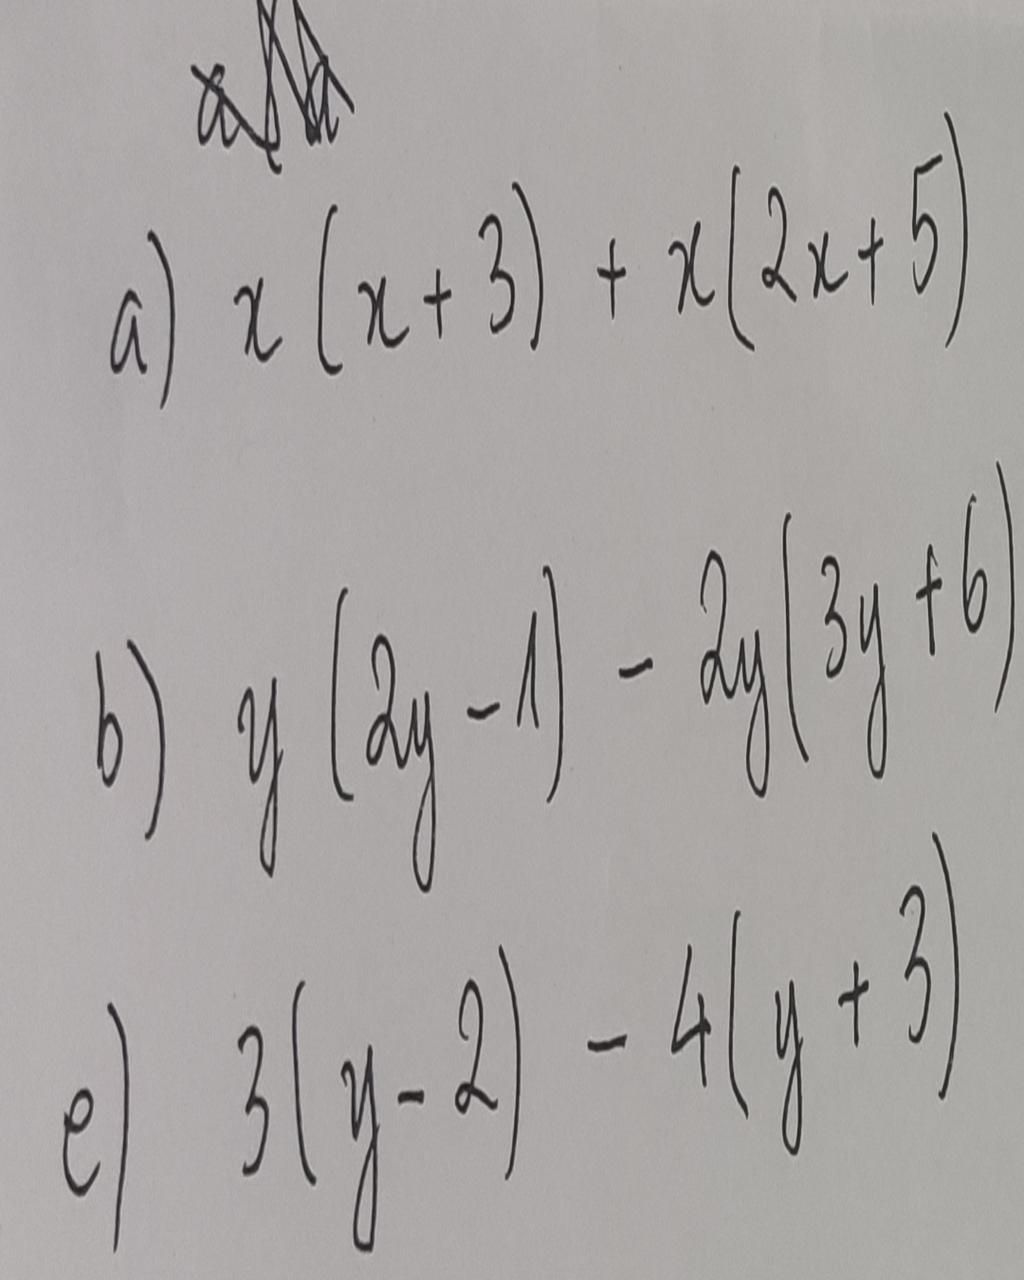 a) x(x+3) + x(2x+5)
b) y(2y-1) - 2y(3y+6)
e) 3(y-2) - 4(y+3)